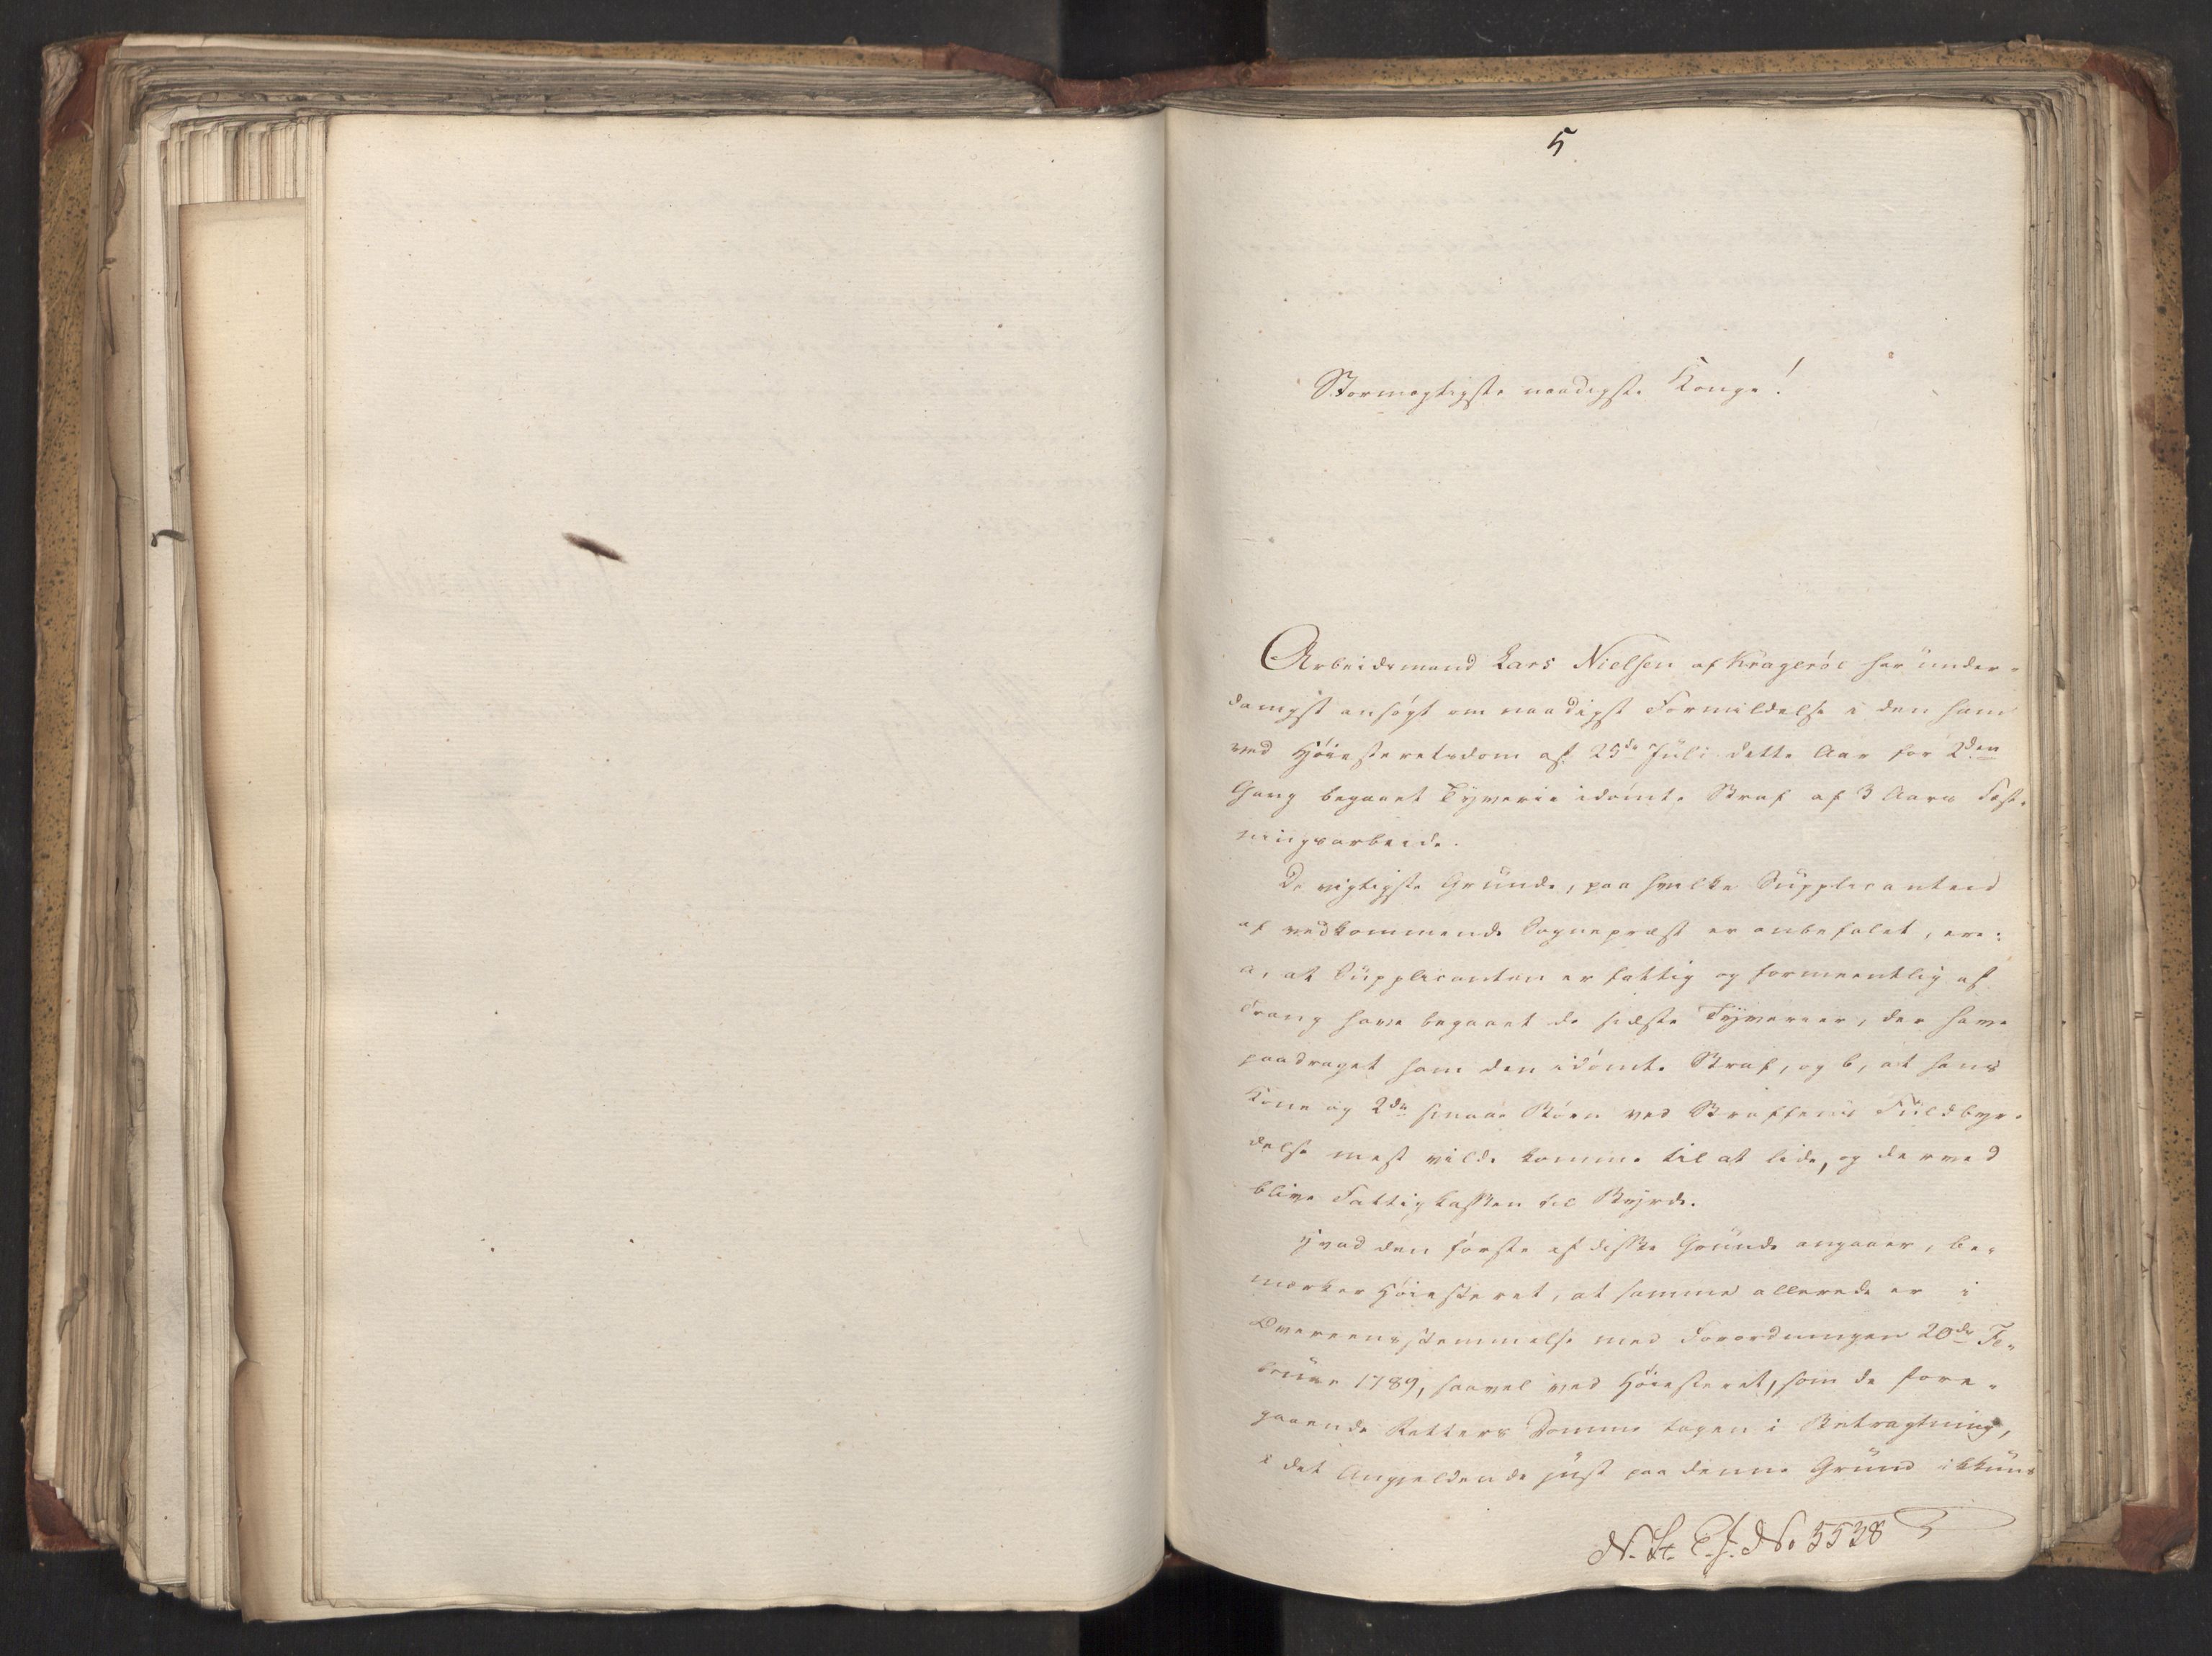 5
Stormægtigste naadigste Konge!
Arbeidsmand Lars Nielsen af Kragerøe har under-
danigst ansøgt om naadigst Formildelse i den ham
ved Høiesteretsdom af 25de Juli dette Aar for 2den
Gang begaaet Tyverie idømte Straf af 3 Aars Fæst-
ningsarbeide.
De vigtigste Grunde, paa hvilke Supplicanten
af vedkommende Sognepræst er anbefalet, ere:
a, at Supplicanten er fattig og formeentlig af
Trang have begaaet de sidste Tyverier, der have
paadraget ham den idømte Straf, og b, at hans
Kone og 2de smaae Børn ved Straffens Fuldbyr-
delse mest vilde komme til at lide, og derved
blive Fattigkassen til Byrde.
Hvad den første af disse Grunde angaaer, be-
mærker Høiesteret, at samme allerede er i
Overeensstemmelse med Forordningen 20de Fe-
bruar 1789, saavel ved Høiesteret, som de fore-
gaaende Retters Domme tagen i Betragtning,
i det Angjeldende just paa denne Grund ikkuns
N. St. C. J. No 5538